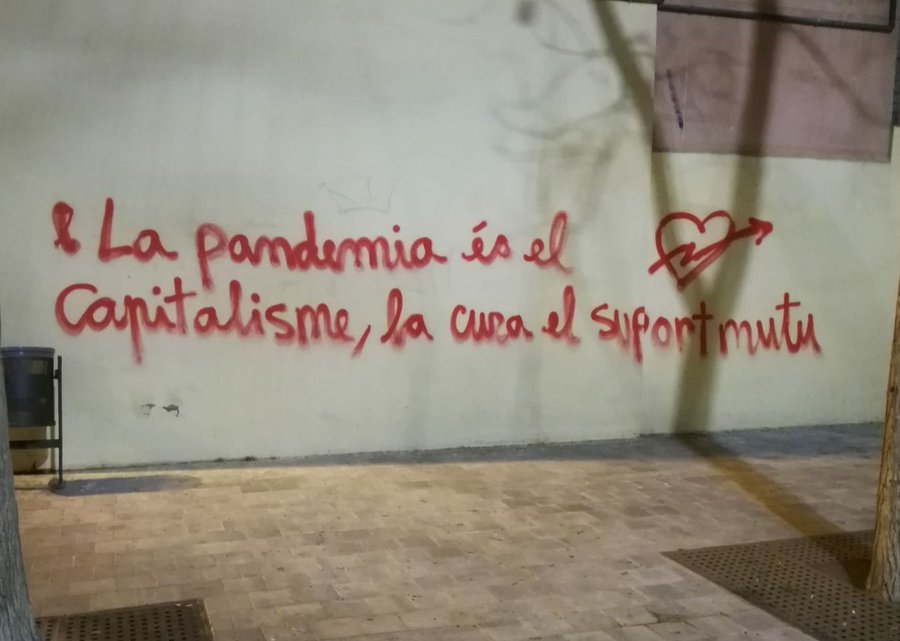 La pandemia és el
Capitalisme, la cura el suport mutu